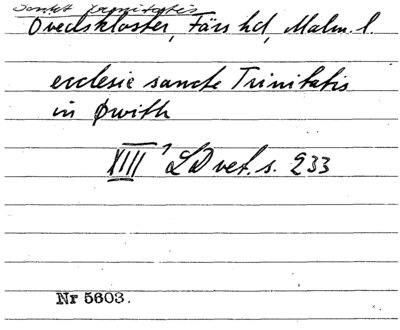 Sankt Trinitatis
Ovedskloster, Färs hd, Malm. l.
ecclesie sancte Trinitatis
in Øwith
XIII 1 LD vet. s. 233
Nr 5603.